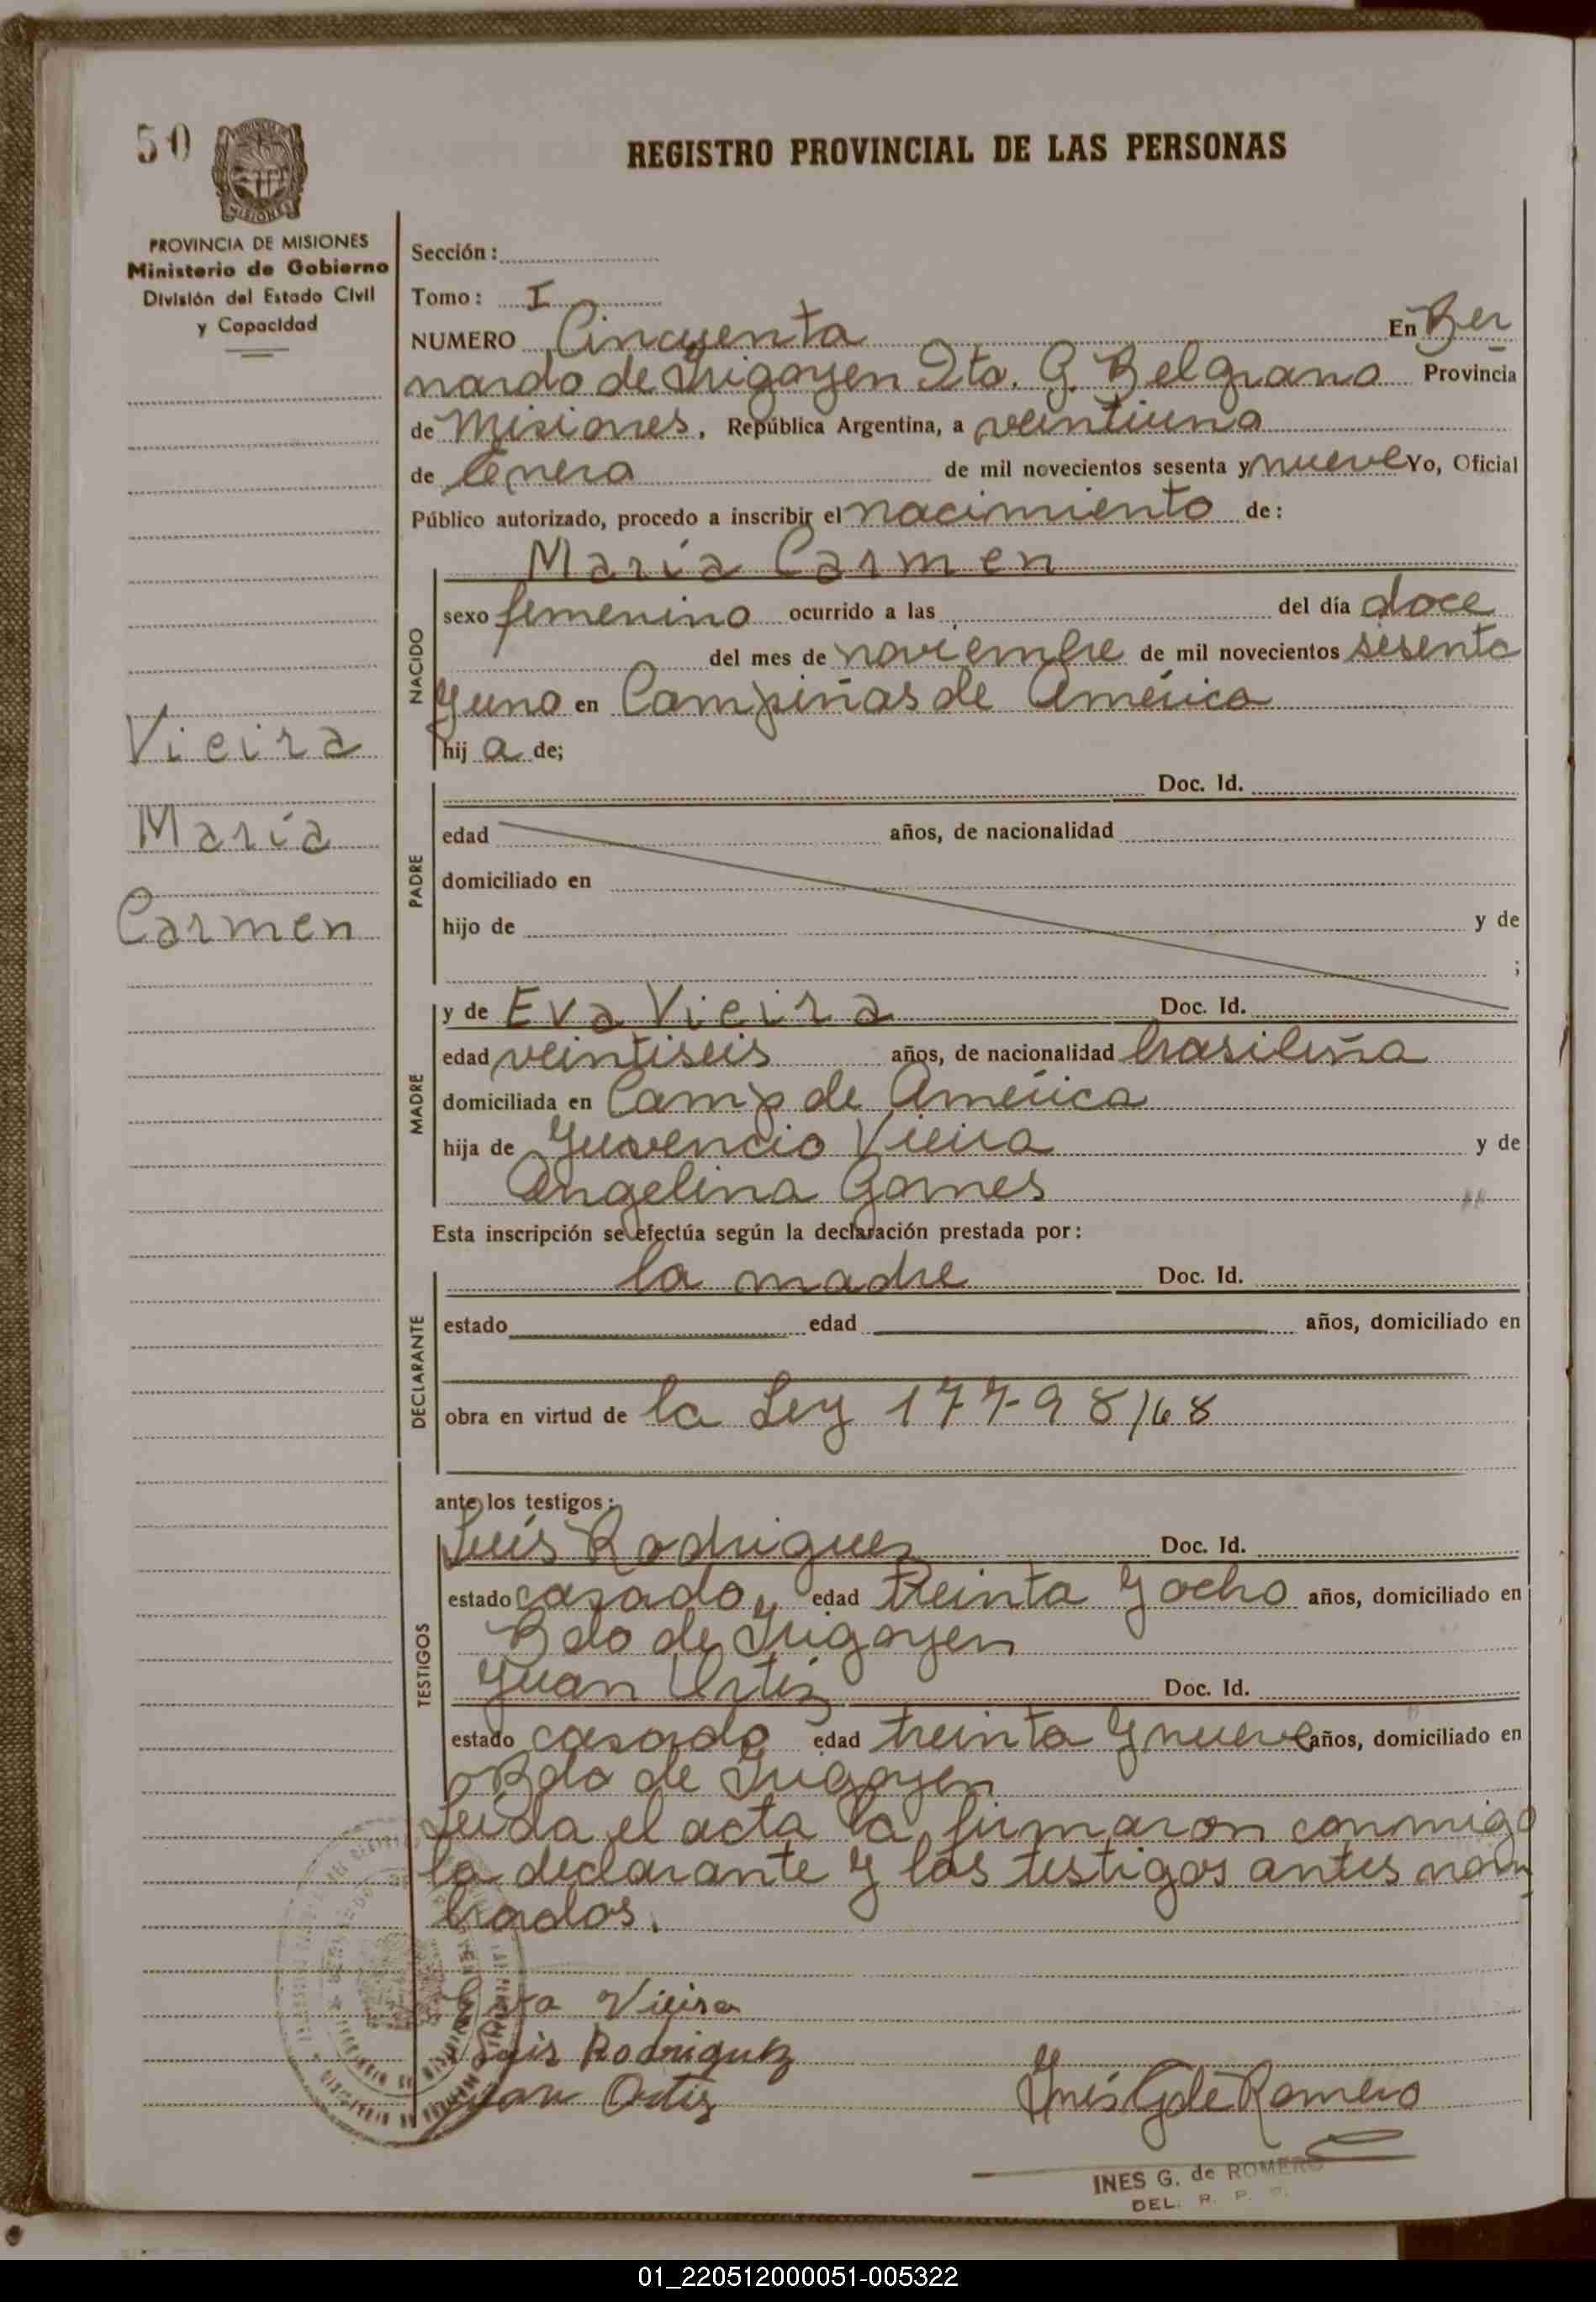 50
REGISTRO PROVINCIAL DE LAS PERSONAS
MISIONES
PROVINCIA DE MISIONES
Ministerio de Gobierno
División del Estado Civil
y Capacidad
Sección:
Tomo: I
NUMERO Cincuenta En Ber
nardo de Irigoyen Dto. G. Belgrano Provincia
de Misiones, República Argentina, a veintiuno
de Enero de mil novecientos sesenta y nueve Yo, Oficial
Público autorizado, procedo a inscribir el nacimiento de:
María Carmen
NACIDO
sexo femenino ocurrido a las del día doce
del mes de noviembre de mil novecientos sesenta
y uno en Campiñas de América
hij a de;
Vieira
María
Carmen
PADRE
Doc. Id.
edad años, de nacionalidad
domiciliado en
hijo de y de
;
MADRE
y de Eva Vieira Doc. Id.
edad veintiseis años, de nacionalidad brasileña
domiciliada en Camp de América
hija de Juvencio Vieira y de
Angelina Gomes
Esta inscripción se efectúa según la declaración prestada por:
DECLARANTE
la madre Doc. Id.
estado edad años, domiciliado en
obra en virtud de la Ley 17798/68
ante los testigos:
TESTIGOS
Luís Rodriguez Doc. Id.
estado casado, edad treinta y ocho años, domiciliado en
Bdo de Irigoyen
Juan Ortiz Doc. Id.
estado casado edad treinta y nueve años, domiciliado en
Bdo de Irigoyen
Leída el acta la firmaron conmigo
la declarante y los testigos antes nom
brados.
Eva Vieira
Luis Rodriguez
Juan Ortiz
Inés G de Romero
INES G. de ROMERO
DEL. R. P. P.
01_220512000051-005322